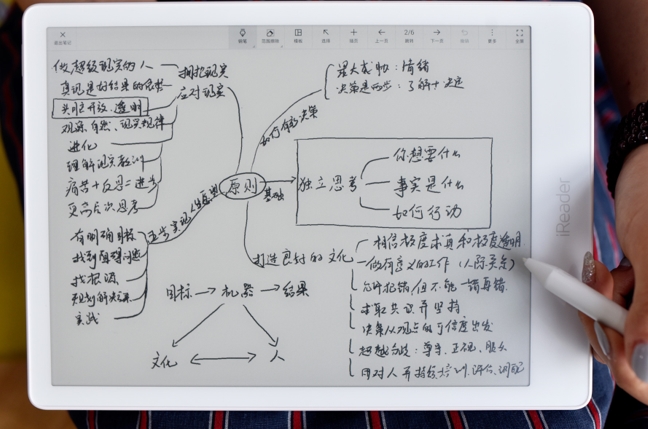 2/6
做超级现实的人
真理是好结果的依据
头脑开放、透明
观察自然、现实规律
进化
理解现实教训
痛苦+反思=进步
更高层次思考
拥抱现实
应对现实
有明确目标
找到阻碍问题
找根源
规划解决方案
实践
五步实现人生愿望
原则
如何有效决策
最大威胁:情绪
决策是两步:了解+决定
基础
独立思考
你想要什么
事实是什么
如何行动
打造良好的文化
相信极度求真和极度透明
做有意义的工作(人际关系)
允许犯错,但不能一错再错
求取共识并坚持
决策从观点的可信度出发
目标
机器
结果
文化
人
iReader